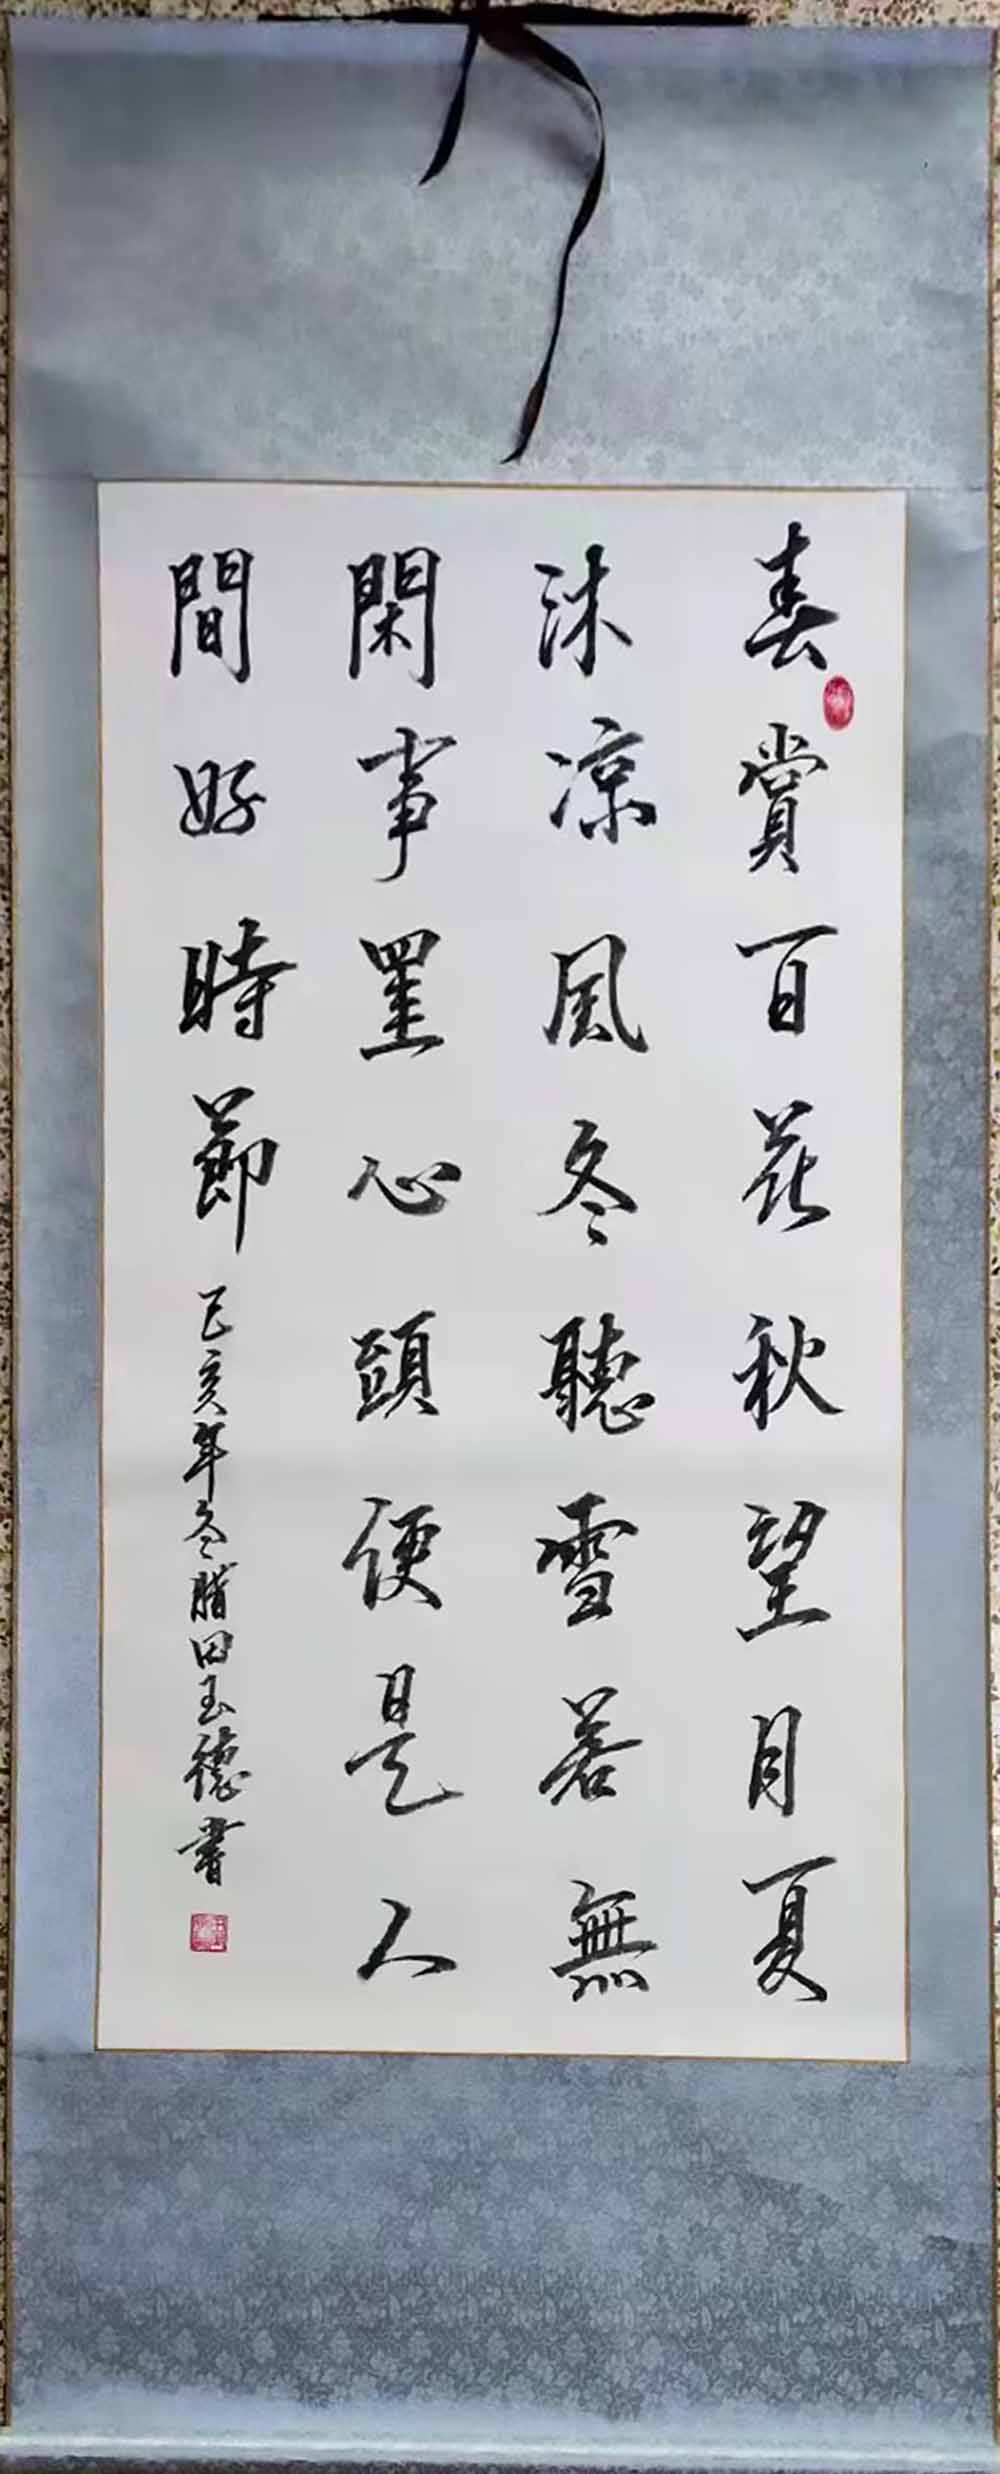 春賞百花秋望月夏
沐凉風冬聽雪若無
閑事罣心頭便是人
間好時節
己亥年冬腊田玉德書